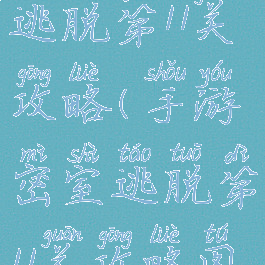 逃脱第11关
gōng lüè shǒu yóu
攻略(手游
mì shì táo tuō dì
密室逃脱第
guān gōng lüè tú
11关攻略图